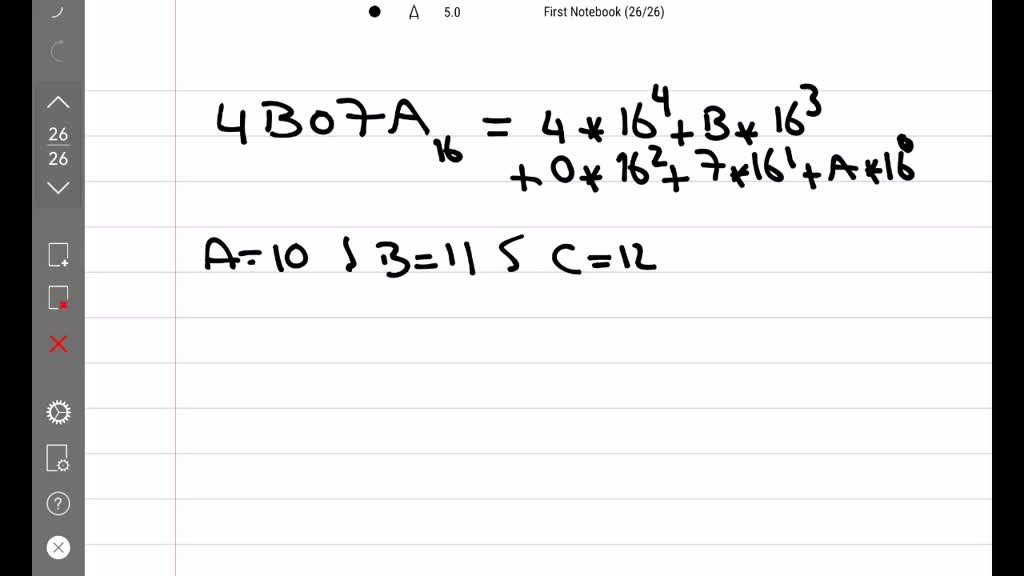 5.0 First Notebook (26/26)
26
26
4B07A₁₆ = 4 * 16⁴ + B * 16³
+ 0 * 16² + 7 * 16¹ + A * 16⁰
A=10 , B=11 , C=12
?